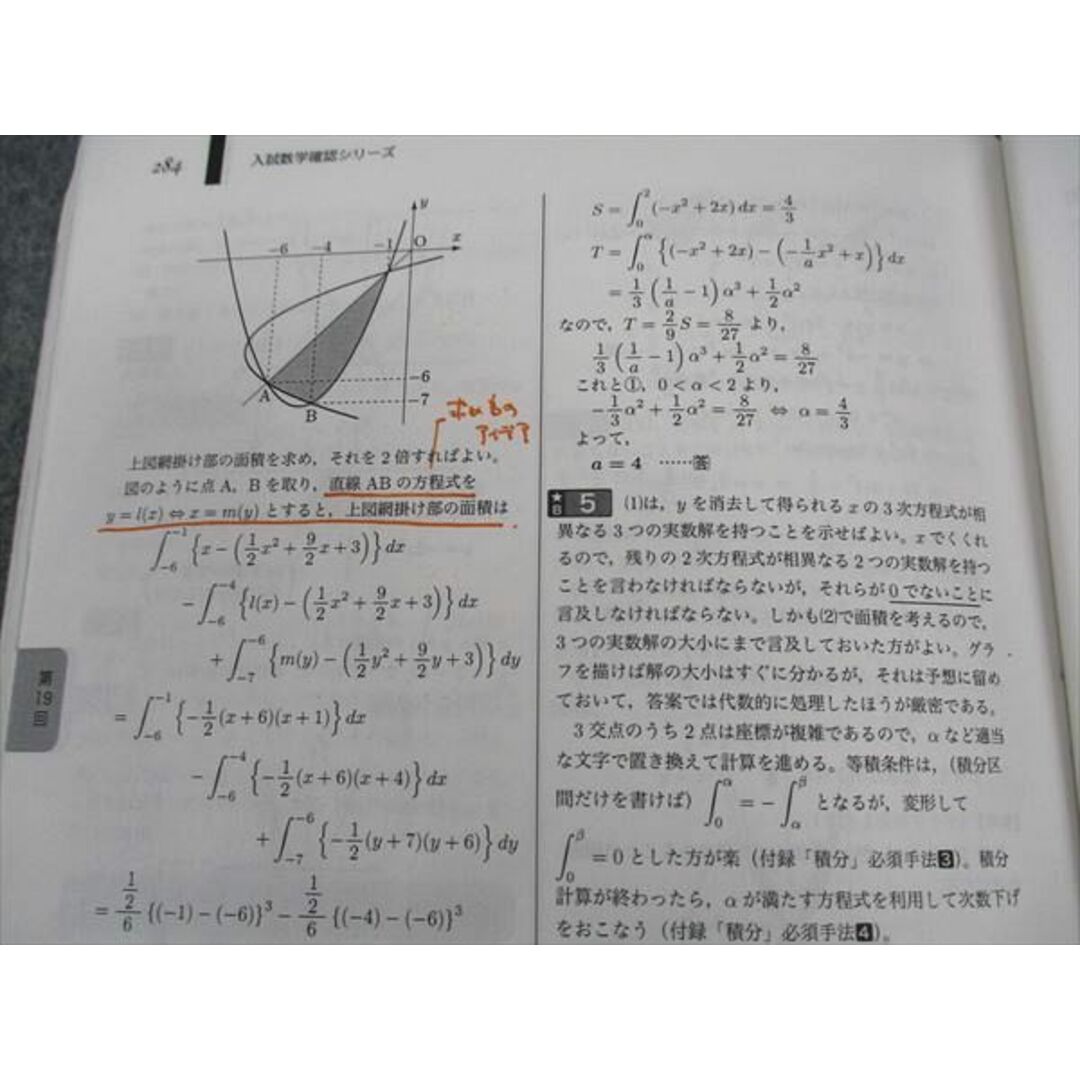 284
入試数学確認シリーズ
y
-6 -4 -1 O x
-6
A
-7
B
アイデア
上図網掛け部の面積を求め，それを2倍すればよい。
図のように点A，Bを取り，直線ABの方程式を
y=l(x)⇔x=m(y)とすると，上図網掛け部の面積は
∫_{-6}^{-1}{x-(1/2 x²+9/2 x+3)}dx
-∫_{-6}^{-4}{l(x)-(1/2 x²+9/2 x+3)}dx
+∫_{-7}^{-6}{m(y)-(1/2 y²+9/2 y+3)}dy
=∫_{-6}^{-1}{-1/2(x+6)(x+1)}dx
-∫_{-6}^{-4}{-1/2(x+6)(x+4)}dx
+∫_{-7}^{-6}{-1/2(y+7)(y+6)}dy
=(1/2)/6{(-1)-(-6)}³-(1/2)/6{(-4)-(-6)}³
第19回
S=∫_0^2(-x²+2x)dx=4/3
T=∫_0^α{(-x²+2x)-(-1/a x²+x)}dx
=1/3(1/a-1)α³+1/2 α²
なので，T=2/9 S=8/27 より，
1/3(1/a-1)α³+1/2 α²=8/27
これと①，0<α<2より，
-1/3 α²+1/2 α²=8/27 ⇔ α=4/3
よって，
a=4 ……答
★B 5 (1)は，yを消去して得られるxの3次方程式が相
異なる3つの実数解を持つことを示せばよい。xでくくれ
るので，残りの2次方程式が相異なる2つの実数解を持つ
ことを言わなければならないが，それらが0でないことに
言及しなければならない。しかも(2)で面積を考えるので，
3つの実数解の大小にまで言及しておいた方がよい。グラ
フを描けば解の大小はすぐに分かるが，それは予想に留め
ておいて，答案では代数的に処理したほうが厳密である。
3交点のうち2点は座標が複雑であるので，αなど適当
な文字で置き換えて計算を進める。等積条件は，(積分区
間だけを書けば) ∫_0^α=-∫_α^β となるが，変形して
∫_0^β=0とした方が楽（付録「積分」必須手法3）。積分
計算が終わったら，αが満たす方程式を利用して次数下げ
をおこなう（付録「積分」必須手法4）。